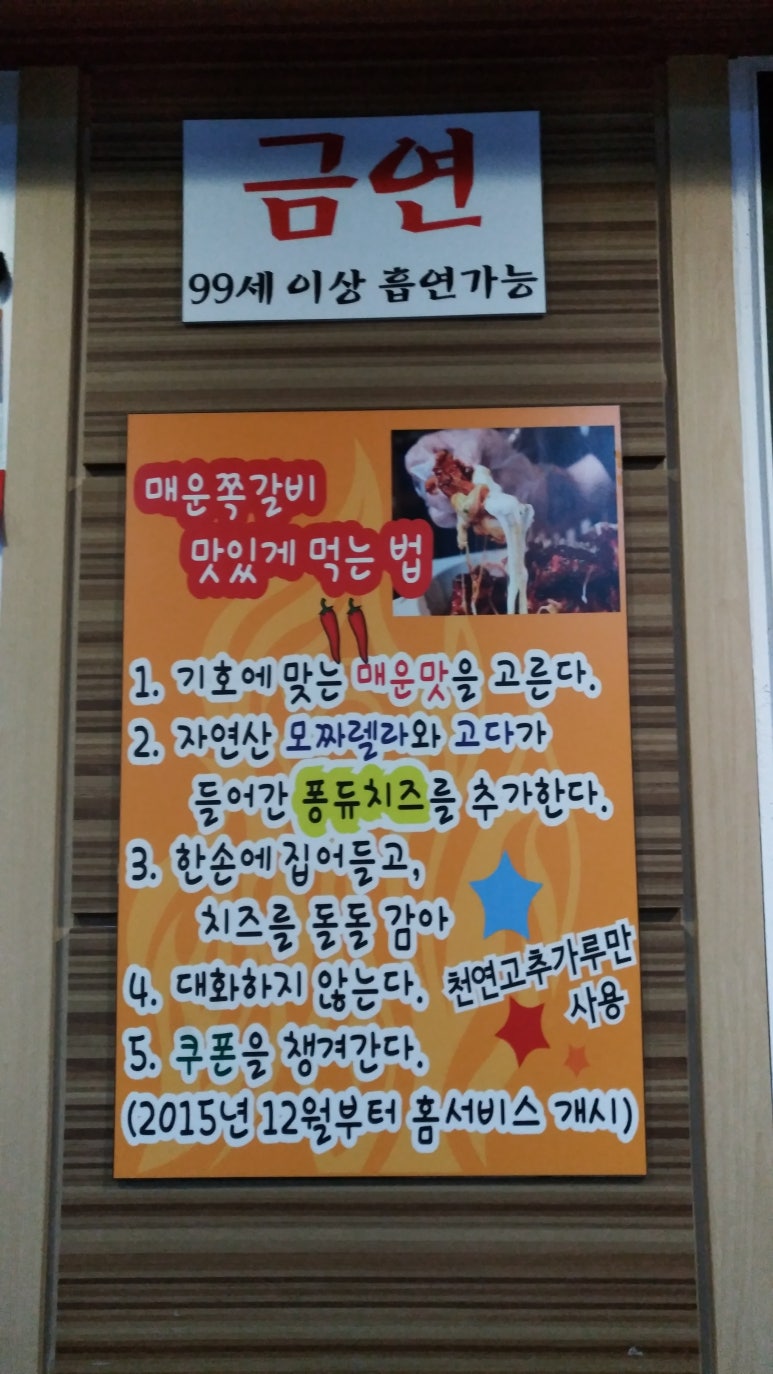 금연
99세 이상 흡연가능
매운쪽갈비
맛있게 먹는 법
1. 기호에 맞는 매운맛을 고른다.
2. 자연산 모짜렐라와 고다가
들어간 퐁듀치즈를 추가한다.
3. 한손에 집어들고,
치즈를 돌돌 감아
4. 대화하지 않는다.
천연고추가루만
사용
5. 쿠폰을 챙겨간다.
(2015년 12월부터 홈서비스 개시)